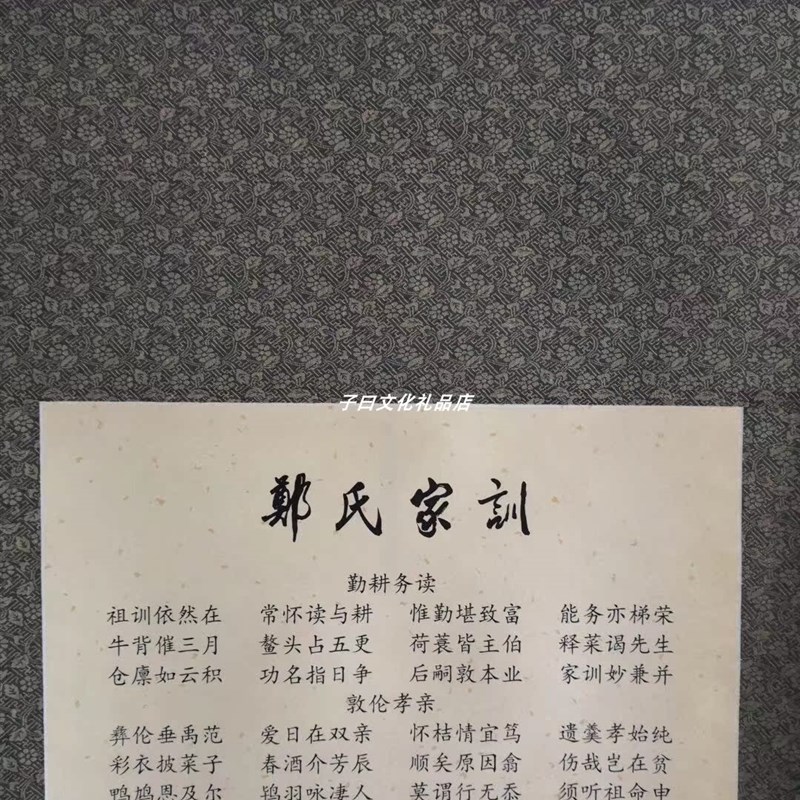 子曰文化礼品店
鄭氏家訓
勤耕务读
祖训依然在 常怀读与耕 惟勤堪致富 能务亦梯荣
牛背催三月 鳌头占五更 荷蓑皆主伯 释菜谒先生
仓廪如云积 功名指日争 后嗣敦本业 家训妙兼并
敦伦孝亲
彝伦垂禹范 爱日在双亲 怀桔情宜笃 遗羹孝始纯
彩衣披菜子 春酒介芳辰 顺矣原因翕 伤哉岂在贫
鸭鸠恩及尔 鸨羽咏凄人 莫谓行无忝 须听祖命申